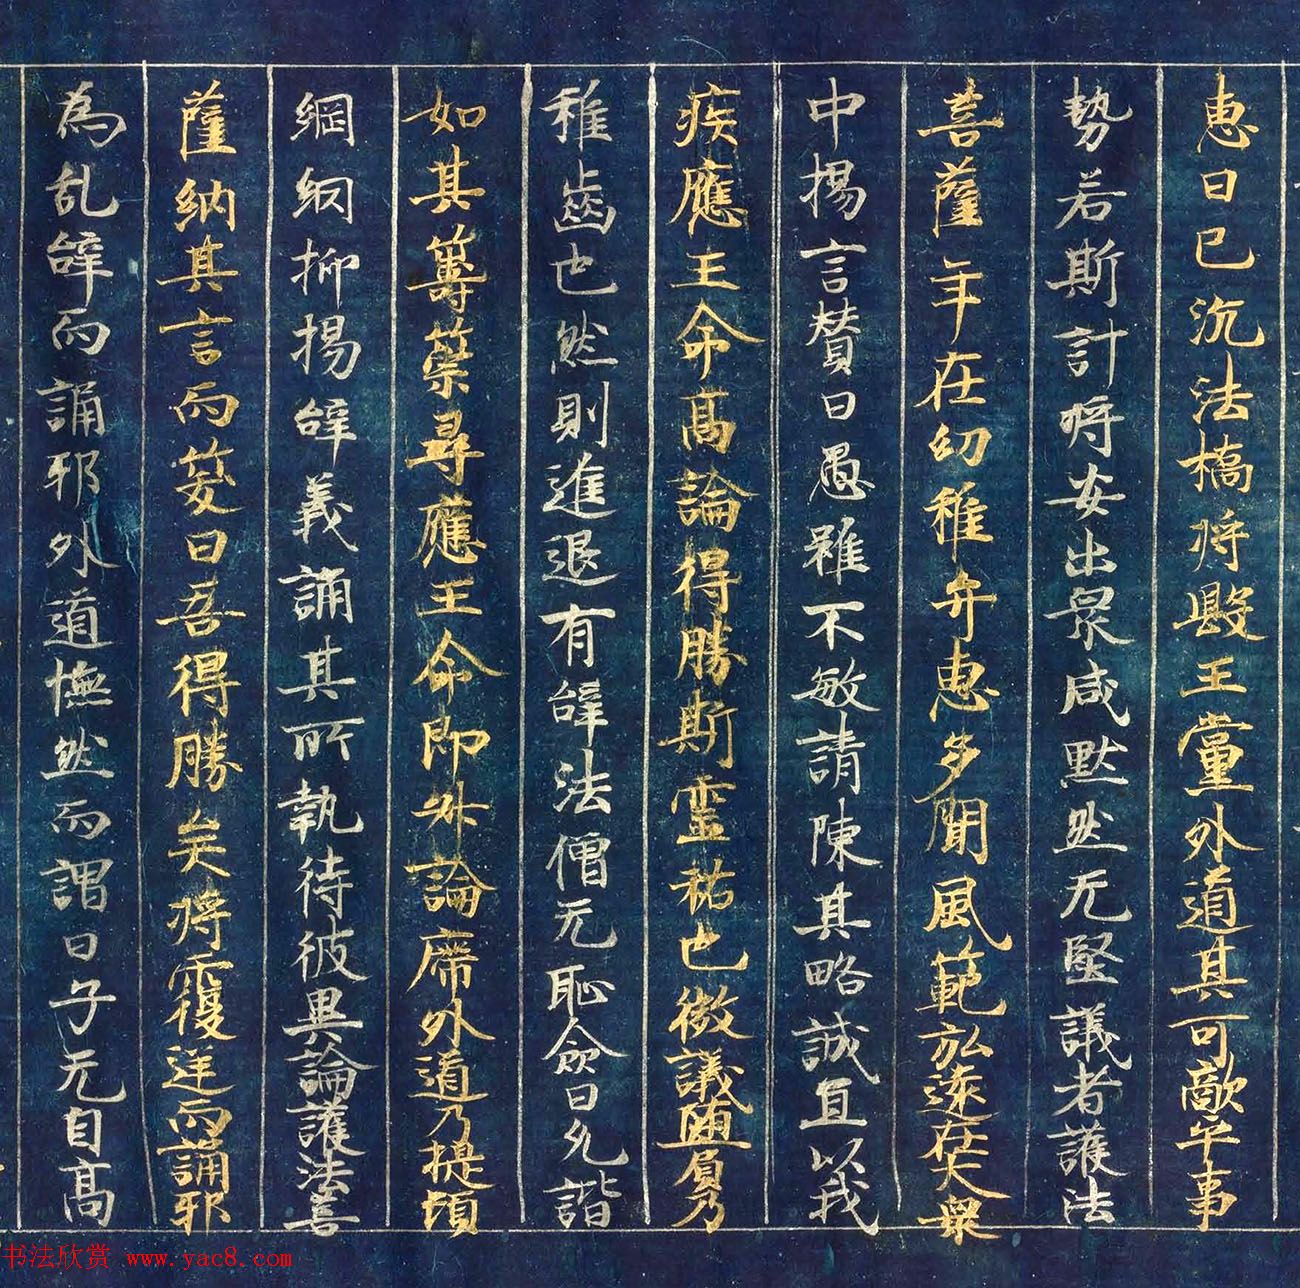 惠日已沉法橋將毀王黨外道其可敵乎事
勢若斯計將安出衆咸默然无堅議者護法
菩薩年在幼稚弁惠多聞風範弘遠在大衆
中揚言賛曰愚雖不敏請陳其略誠宜以我
疾應王命高論得勝斯靈祐也徴議随負乃
稚齒也然則進退有辞法僧无恥僉曰允諧
如其籌策尋應王命即外論席外道乃提頓
綱網抑揚辞義誦其所執待彼異論護法菩
薩納其言而笑曰吾得勝矣將覆逆而誦邪
為乱辞而誦邪外道憮然而謂曰子无自高
书法欣赏 www.yac8.com